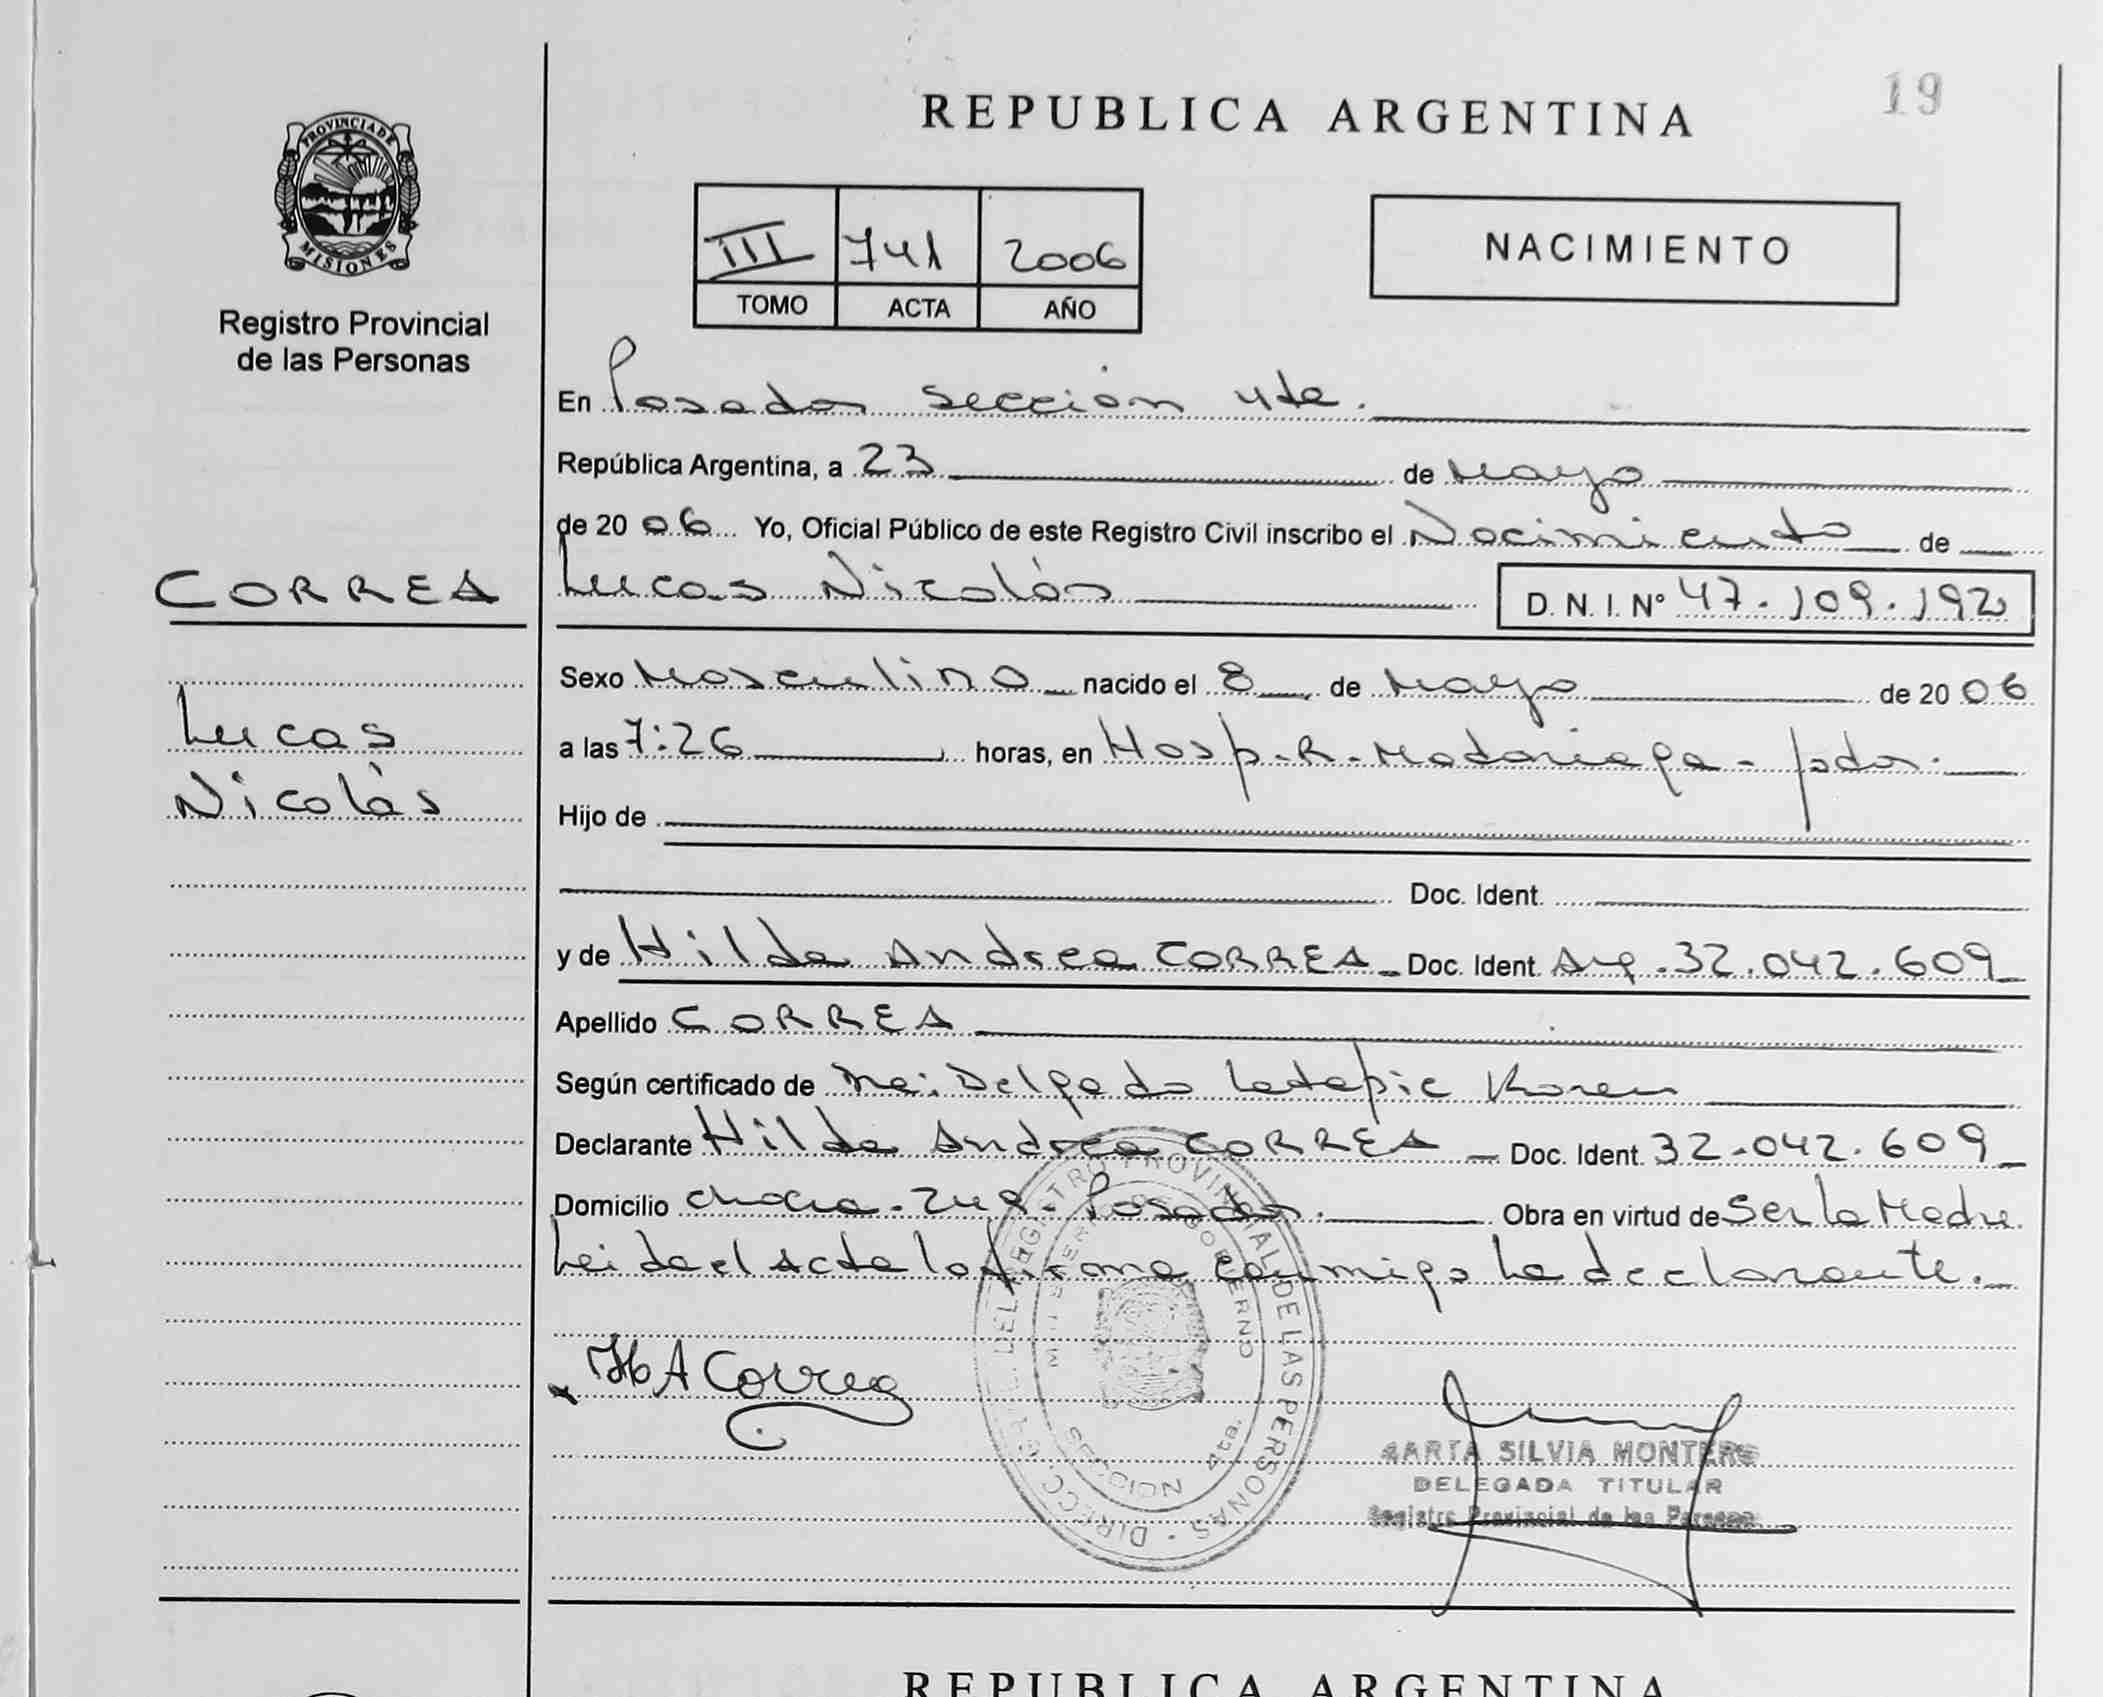 19
REPUBLICA ARGENTINA
PROVINCIA DE
MISIONES
Registro Provincial
de las Personas
III 741 2006
TOMO ACTA AÑO
NACIMIENTO
En Posadas sección 4ta.
República Argentina, a 23 de Mayo
de 2006 Yo, Oficial Público de este Registro Civil inscribo el Nacimiento de
CORREA
Lucas Nicolás D. N. I. Nº 47.109.192
Lucas
Nicolás
Sexo Masculino nacido el 8 de Mayo de 2006
a las 7:26 horas, en Hosp. R. Madariaga - pdas.
Hijo de
Doc. Ident.
y de Hilda Andrea CORREA Doc. Ident. Arg. 32.042.609
Apellido CORREA
Según certificado de Delgado Karen
Declarante Hilda Andrea CORREA Doc. Ident. 32.042.609
Domicilio chacra 249 - Posadas. Obra en virtud de Ser la Madre
Leida el Acta la firma conmigo la declarante.
HA Correa
DIRECC. GRAL. DEL REGISTRO PROVINCIAL DE LAS PERSONAS
MINISTERIO DE GOBIERNO
SECCION 4ta.
MARTA SILVIA MONTERO
DELEGADA TITULAR
Registro Provincial de las Personas
REPUBLICA ARGENTINA